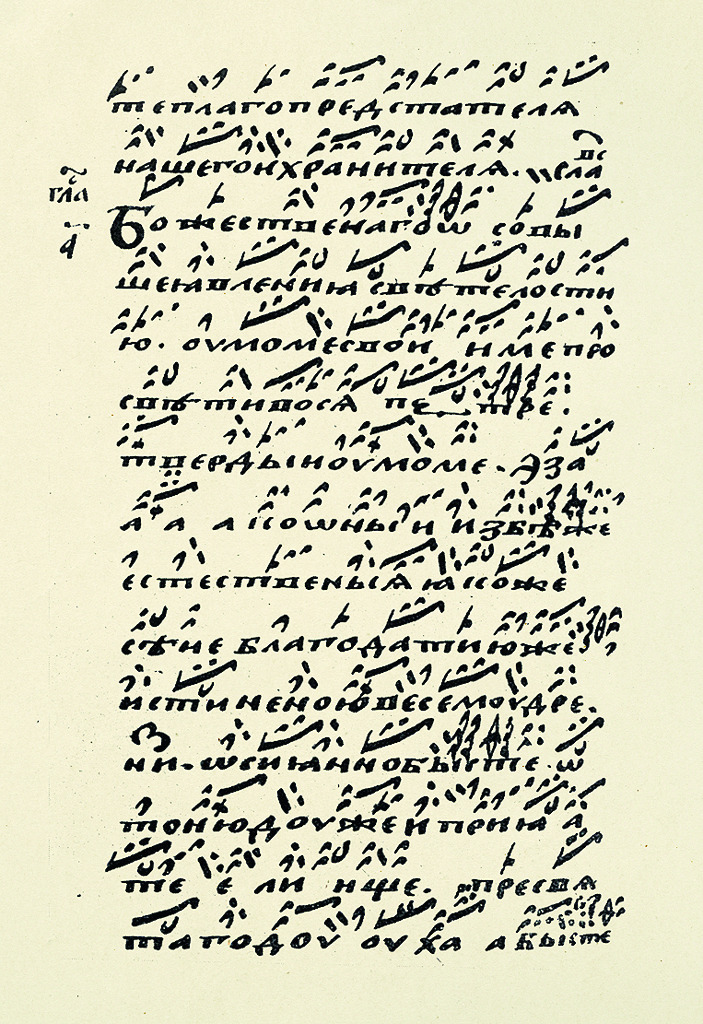 теплаго предстателя
нашего и хранителя. сла
гла а҃
Божественагѡ совы
шеꙗвления свѣтелости
ю. оумомесвои име про
свѣтивося пе тре.
твердыи оумоме. Аза
а а а коѡныи и избѣже
естественыѧ ꙗкоже
сѣние благодатию же
истиненою весемоудре.
ни. ѡсиꙗни обысте. ѿ
тоню доу же и приꙗ а
те е ли ище. пресвѧ
таго доу оу ха а бысте